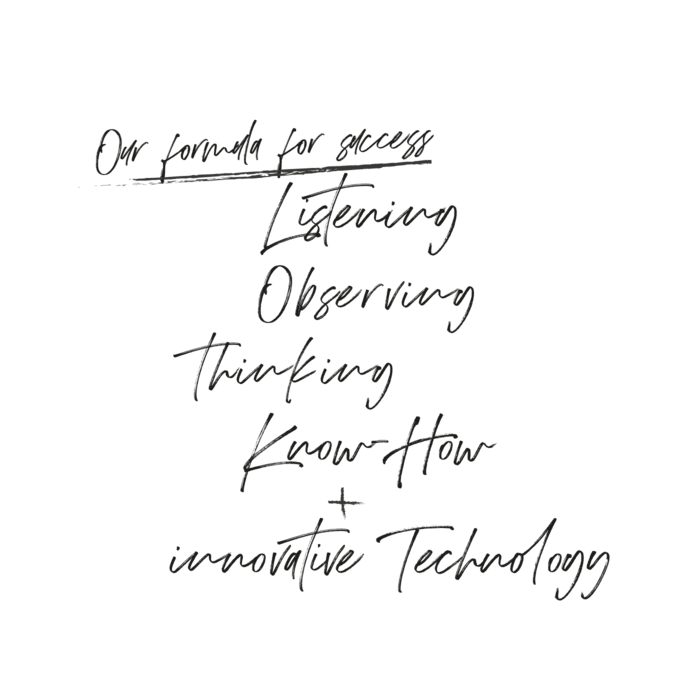 Our formula for success
Listening
Observing
Thinking
Know-How
+
innovative Technology